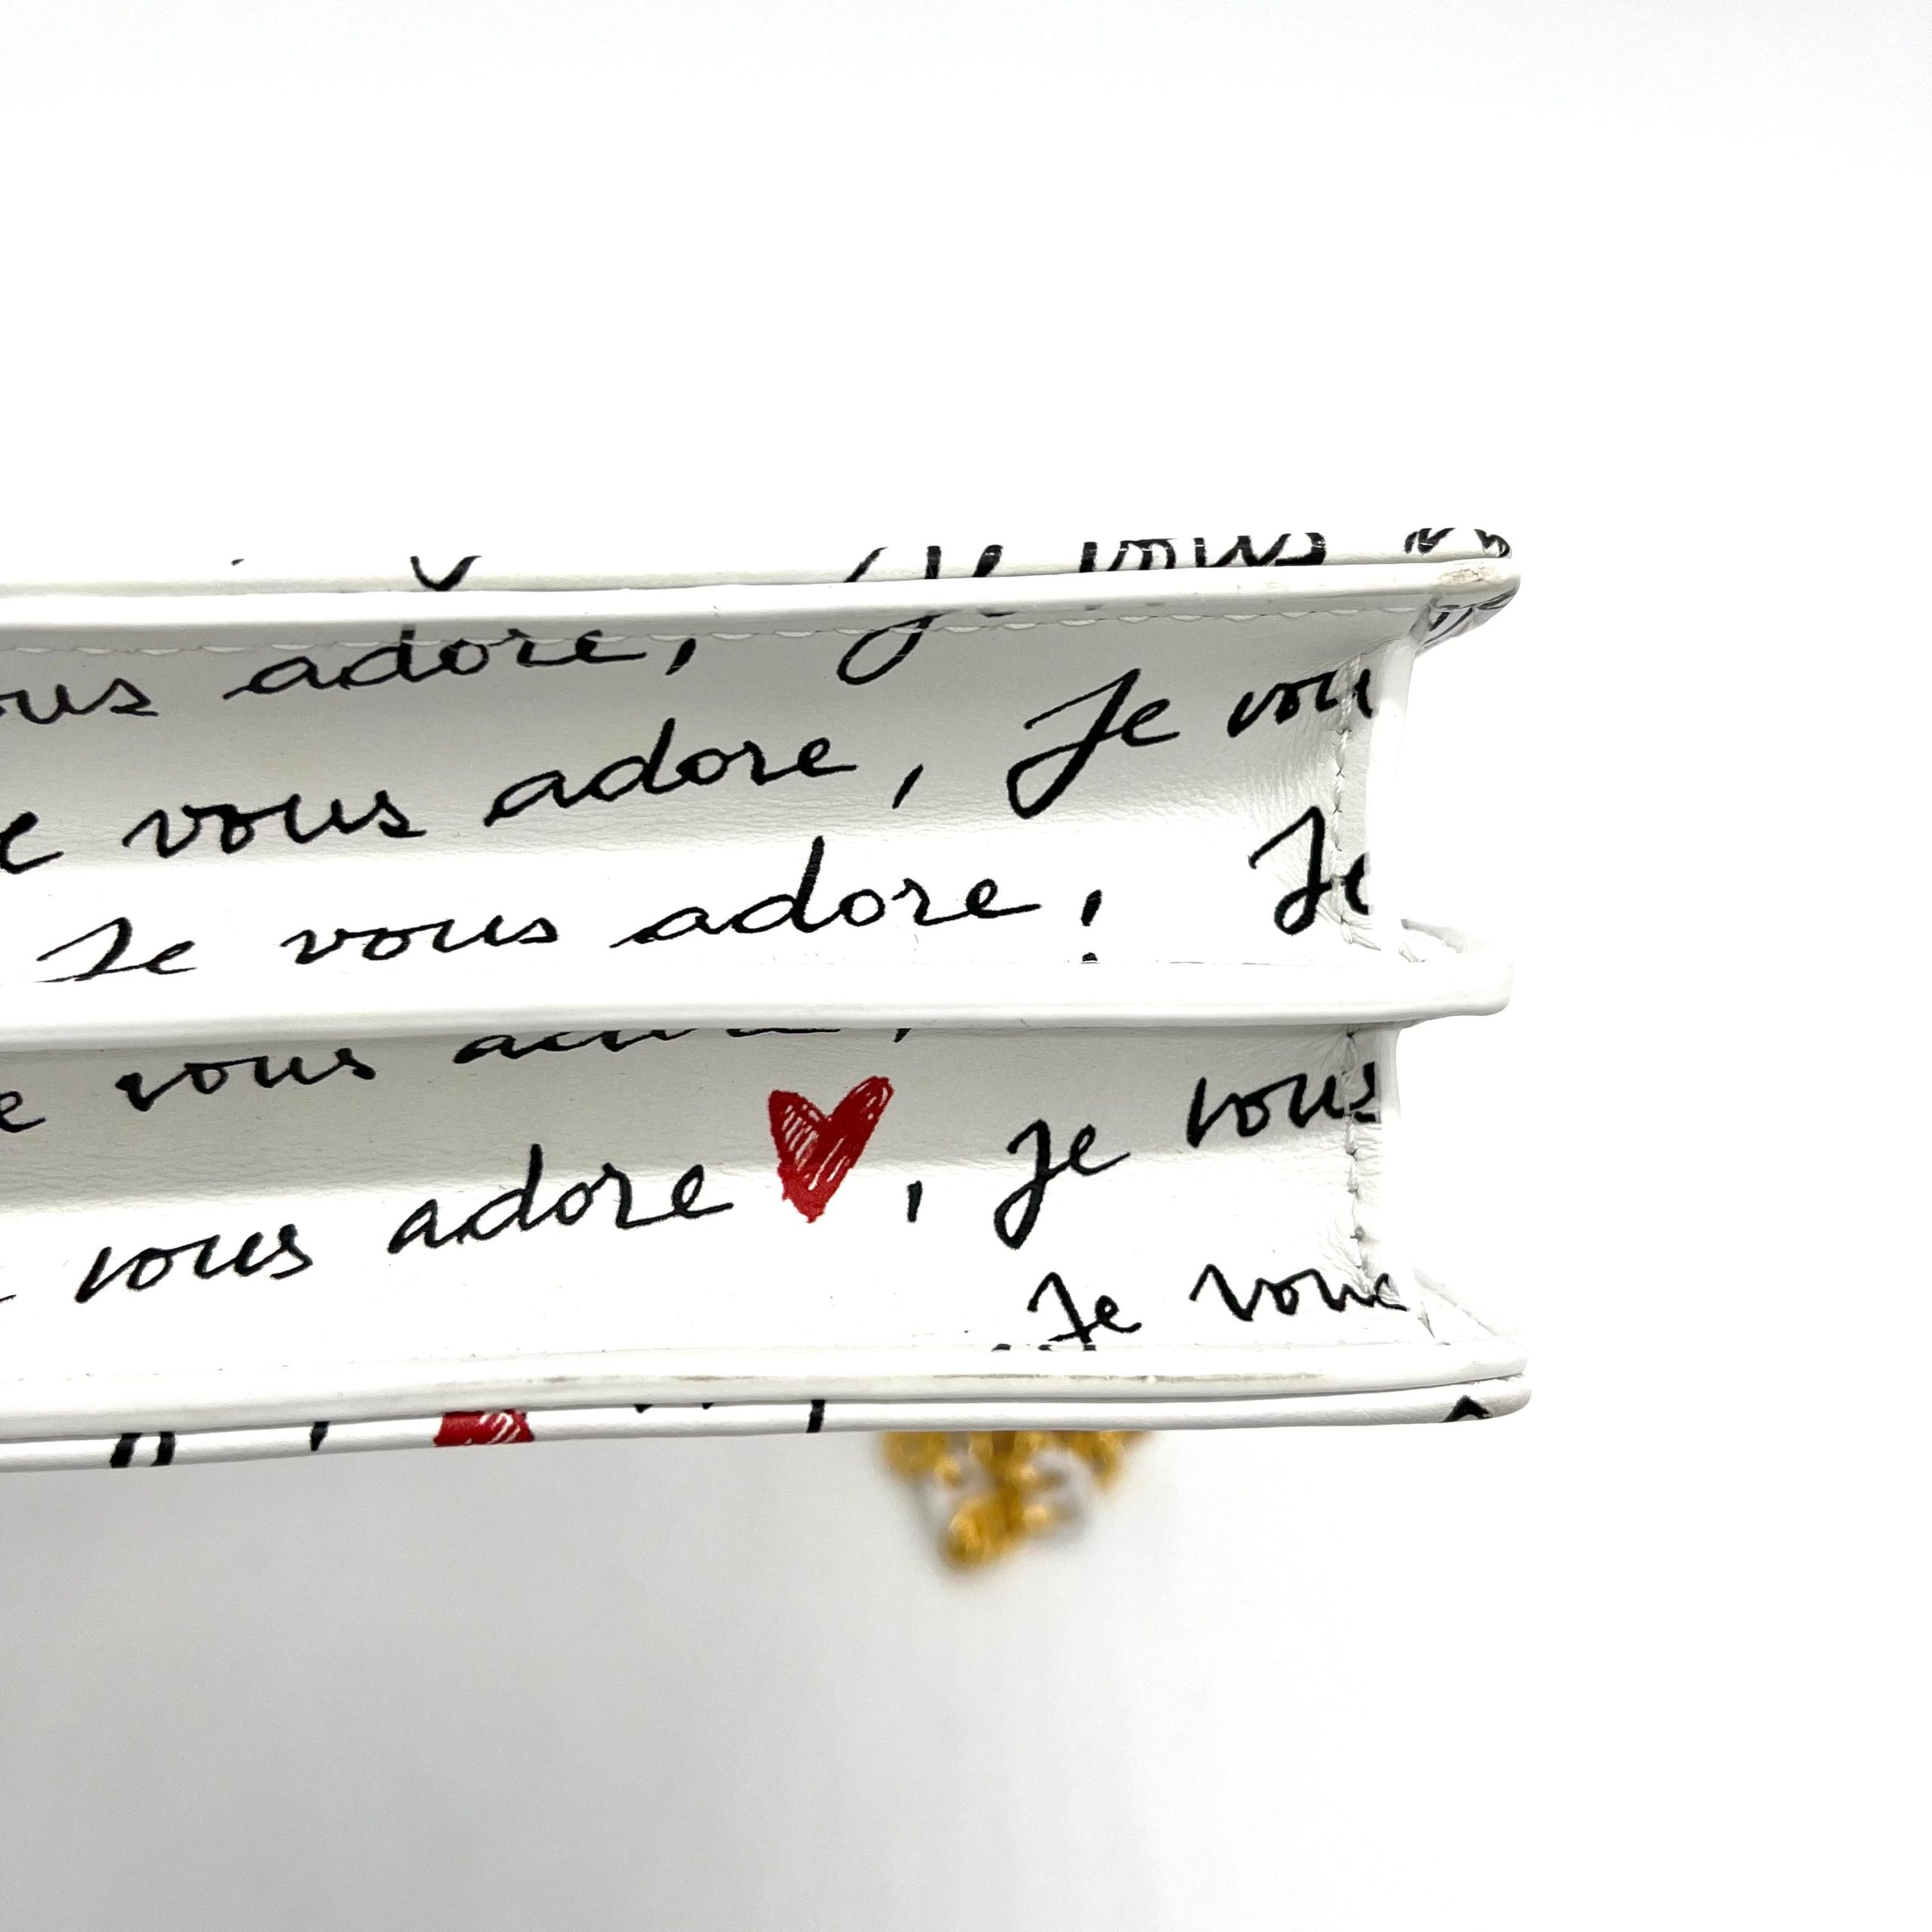 Je vous
adore, Je
e vous adore, Je vou
Je vous adore, Je
e vous
vous adore, je vous
Je vous